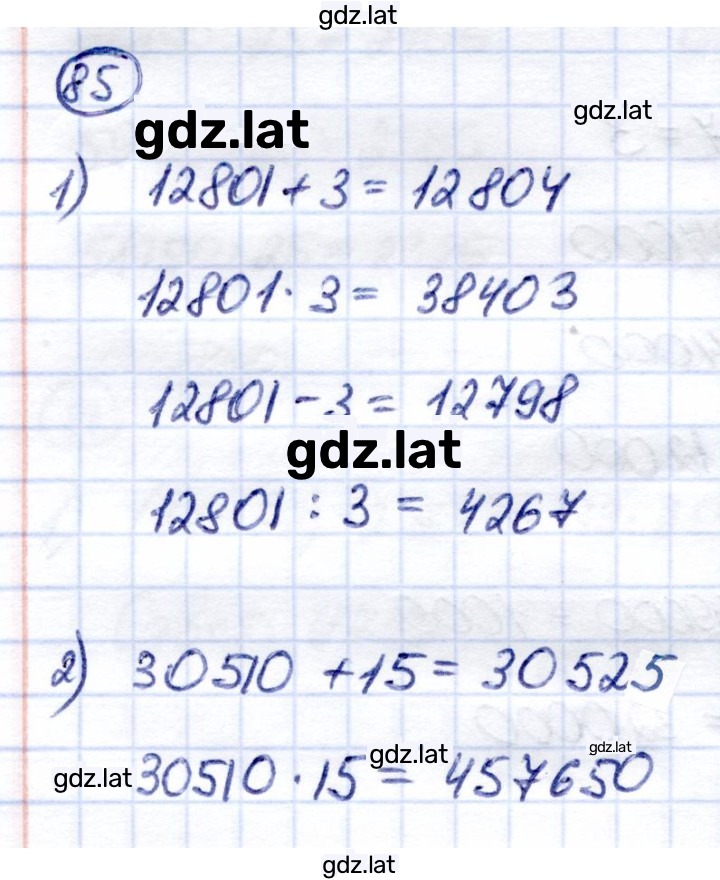 gdz.lat
85
gdz.lat
gdz.lat
1) 12801 + 3 = 12804
12801 · 3 = 38403
12801 - 3 = 12798
gdz.lat
12801 : 3 = 4267
2) 30510 + 15 = 30525
gdz.lat
gdz.lat
gdz.lat
30510 · 15 = 457650
gdz.lat